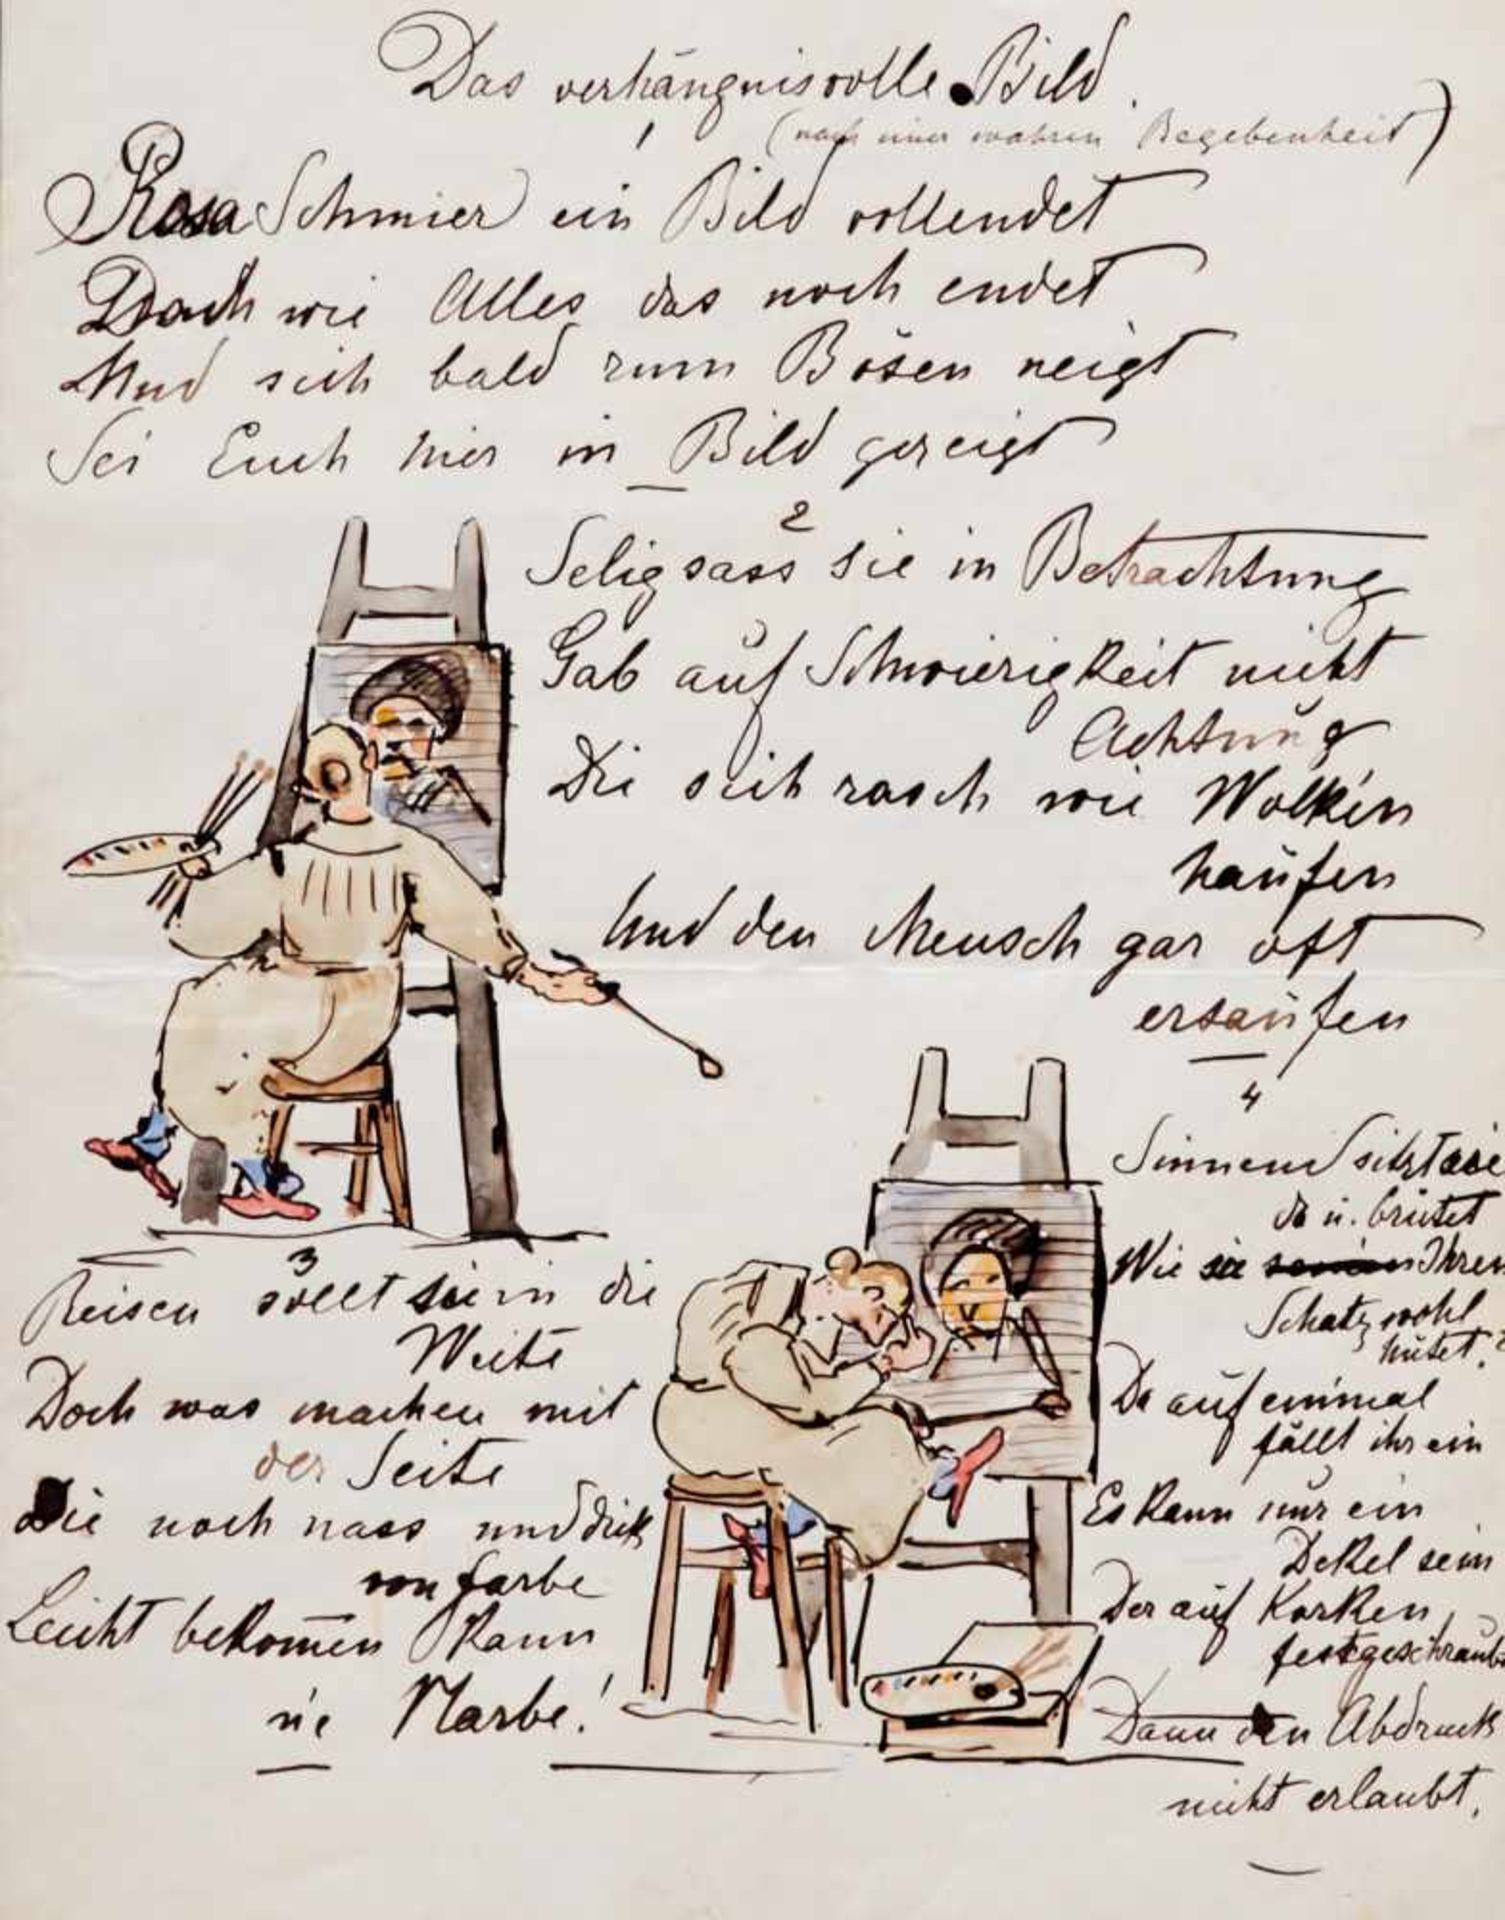 Das verhängnisvolle Bild.
(nach einer wahren Begebenheit)
1
Rosa Schmier ein Bild vollendet
Doch wie Alles das noch endet
Und sich bald zum Bösen neigt
Sei Euch hier in Bild gezeigt
2
Selig sass sie in Betrachtung
Gab auf Schwierigkeit nicht
Achtung
Die sich rasch wie Wolken
haufen
Und den Mensch gar oft
ersaufen
3
Reisen sollt sie in die
Weite
Doch was machen mit
der Seite
Die noch nass und dick
von farbe
Leicht bekomen kann
'ne Narbe!
4
Sinnend sitzt sie
da u. brütet
Wie sie Ihren
Schatz wohl
hütet?
Da auf einmal
fällt ihr ein
Es kann nur ein
Dekel sein
Der auf Korken
festgeschraubt
Dann den Abdruck
nicht erlaubt.